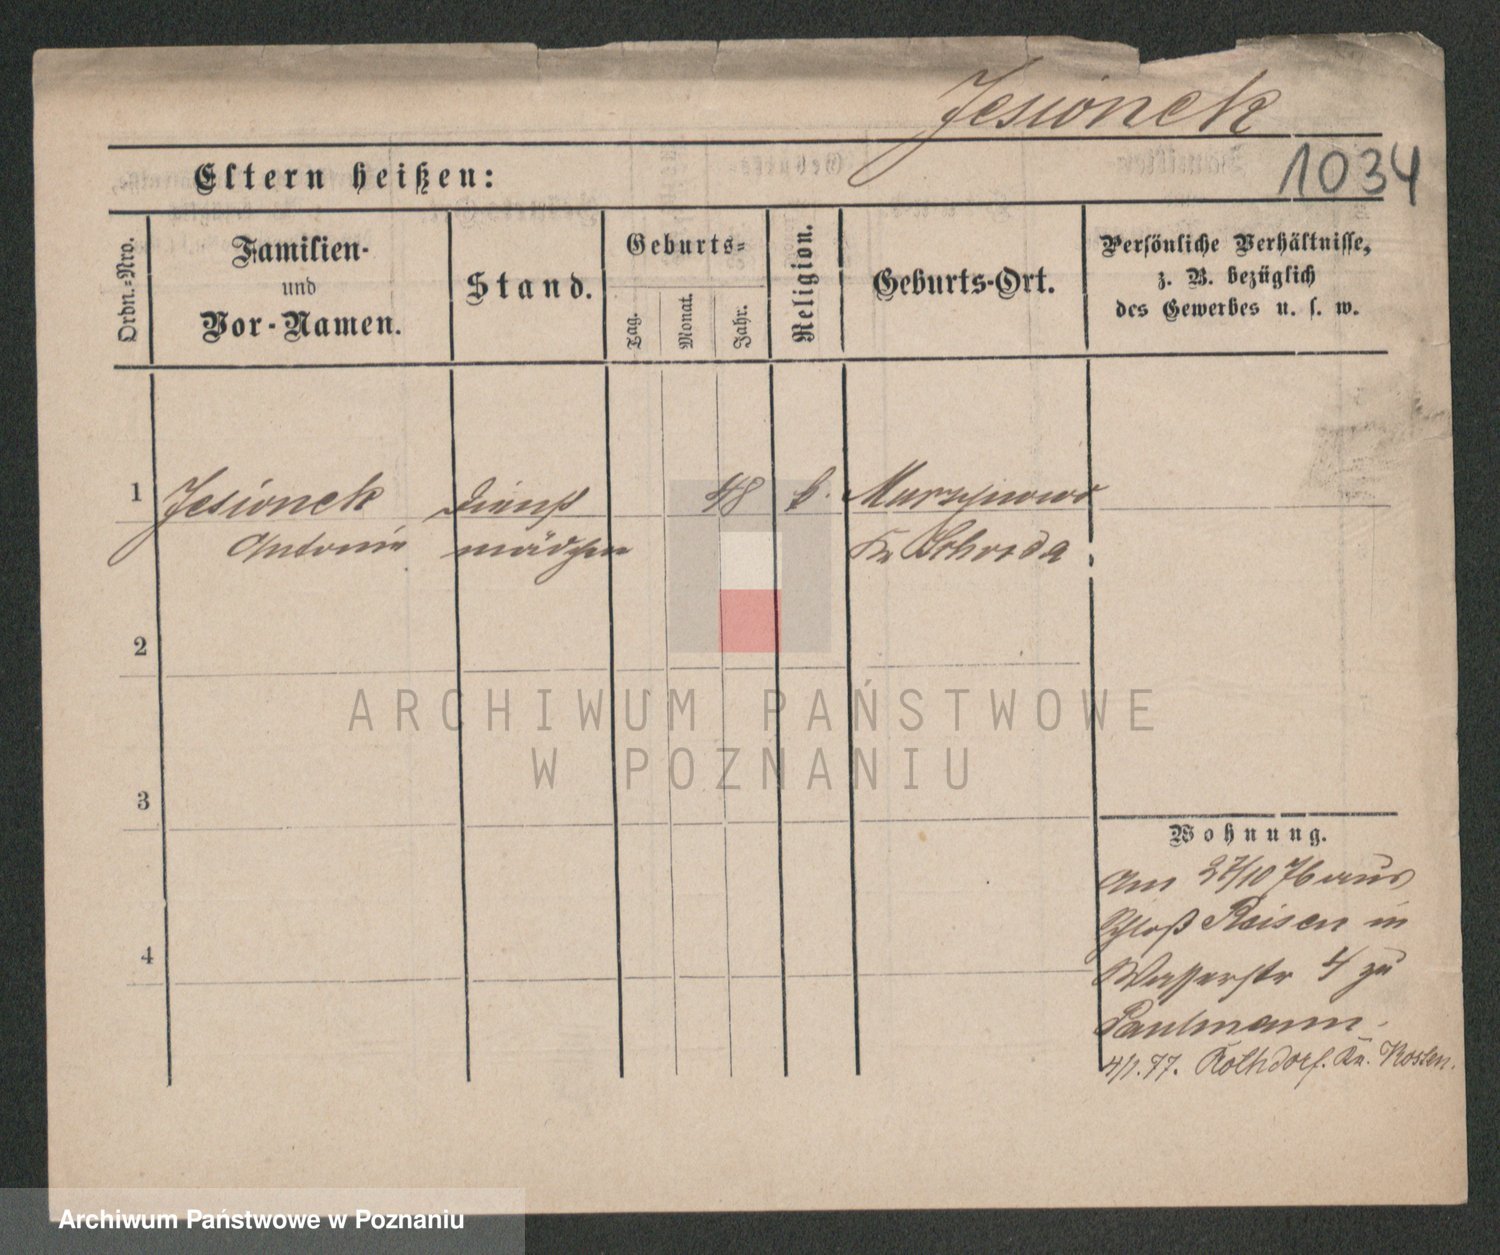 Jesionek
1034
Eltern heißen:
Ordn.-Nro.
Familien-
und
Vor-Namen.
Stand.
Geburts-
Tag.
Monat.
Jahr.
Religion.
Geburts-Ort.
Persönliche Verhältnisse,
z. B. bezüglich
des Gewerbes u. s. w.
1 Jesionek Dienst 48 k. Murzynowo
Antonie mädchen Kr Schroda
2
3
4
Wohnung.
Am 27/10 76 aus
Schloß Reisen in
Wasserstr 4 zu
Paulmann.
4/1.77. Rothdorf. Kr. Kosten.
ARCHIWUM PAŃSTWOWE
W POZNANIU
Archiwum Państwowe w Poznaniu